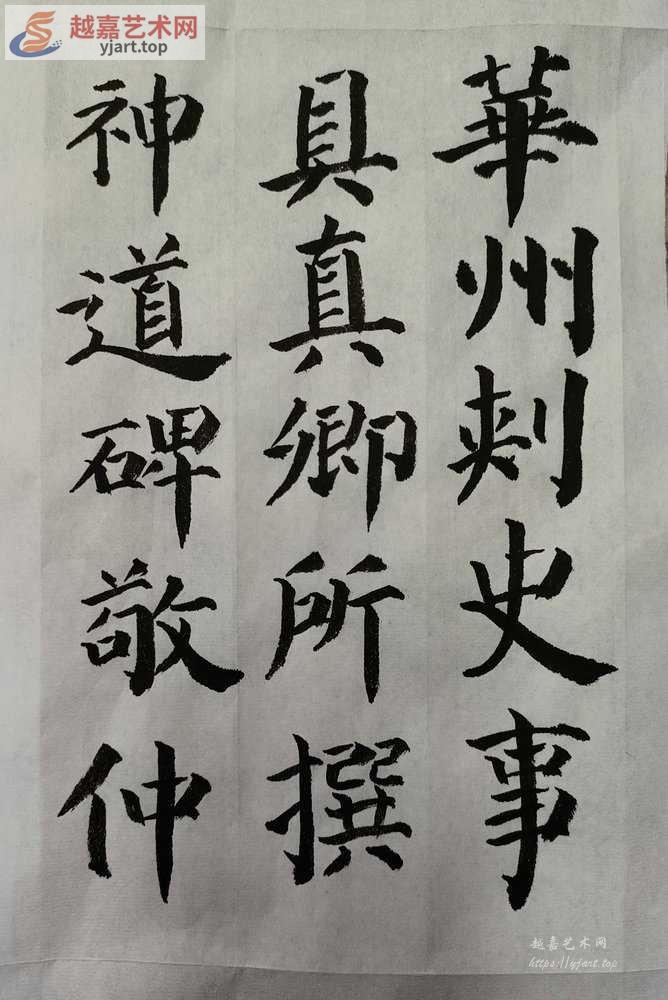 越嘉艺术网
yjart.top
華州刺史事
具真卿所撰
神道碑敬仲
越嘉艺术网
https://yjart.top